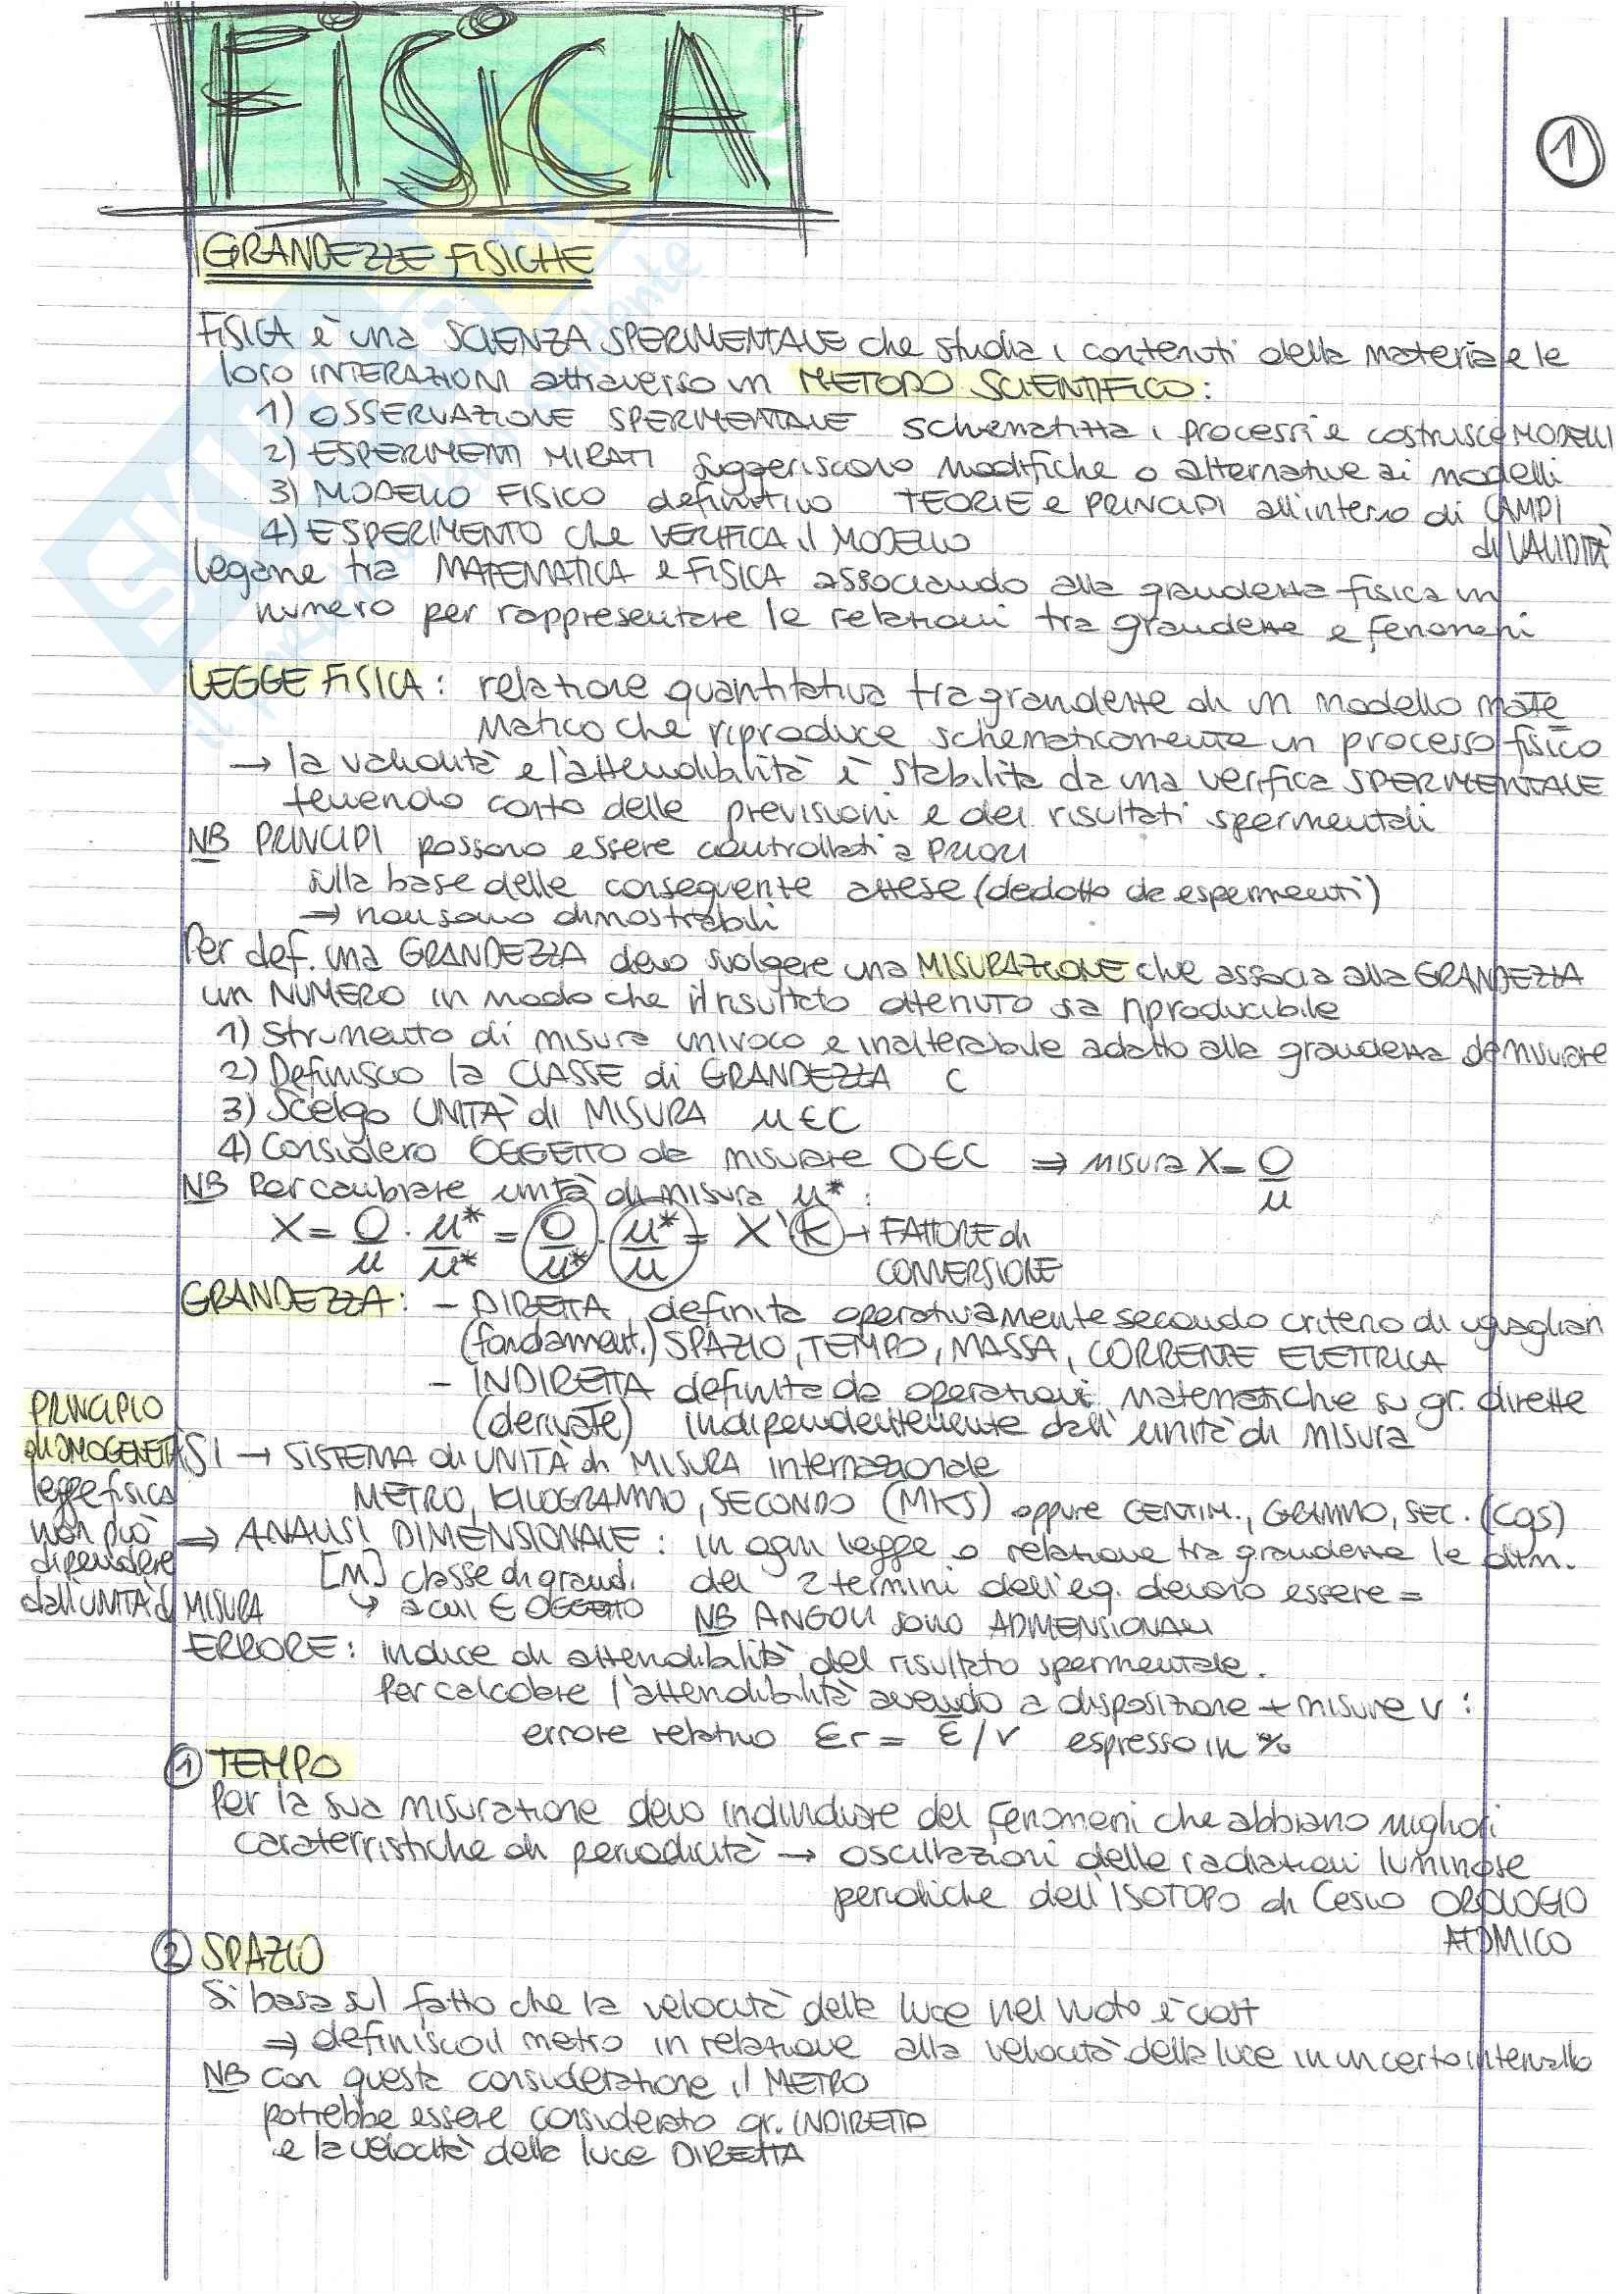 FiSiCA
1
GRANDEZZE FISICHE
FISICA è una SCIENZA SPERIMENTALE che studia i contenuti della materia e le
loro INTERAZIONI attraverso un METODO SCIENTIFICO:
1) OSSERVAZIONE SPERIMENTALE schematizza i processi e costruisce MODELLI
2) ESPERIMENTI MIRATI suggeriscono modifiche o alternative ai modelli
3) MODELLO FISICO definitivo TEORIE e PRINCIPI all'interno di CAMPI
di VALIDITÀ
4) ESPERIMENTO che VERIFICA il MODELLO
legame tra MATEMATICA e FISICA associando alla grandezza fisica un
numero per rappresentare le relazioni tra grandezze e fenomeni
LEGGE FISICA: relazione quantitativa tra grandezze di un modello mate
matico che riproduce schematicamente un processo fisico
→ la validità e l'attendibilità è stabilita da una verifica SPERIMENTALE
tenendo conto delle previsioni e dei risultati sperimentali
NB PRINCIPI possono essere controllati a PRIORI
sulla base delle conseguenze attese (dedotto da esperimenti)
⇒ non sono dimostrabili
Per def. una GRANDEZZA devo svolgere una MISURAZIONE che associa alla GRANDEZZA
un NUMERO in modo che il risultato ottenuto sia riproducibile
1) Strumento di misura univoco e inalterabile adatto alla grandezza da misurare
2) Definisco la CLASSE di GRANDEZZA C
3) Scelgo UNITÀ di MISURA u∈C
4) Considero OGGETTO da misurare O∈C ⇒ misura X = O/u
NB Per cambiare unità di misura u*:
X = O/u · u*/u* = O/u* · u*/u = X' k → FATTORE di
CONVERSIONE
GRANDEZZA: - DIRETTA definita operativamente secondo criterio di uguaglian
(fondament.) SPAZIO, TEMPO, MASSA, CORRENTE ELETTRICA
- INDIRETTA definita da operazioni matematiche su gr. dirette
(derivate) indipendentemente dall'unità di misura
PRINCIPIO
di OMOGENEITÀ
legge fisica
non può
dipendere
dall'UNITÀ di MISURA
SI → SISTEMA di UNITÀ di MISURA internazionale
METRO, KILOGRAMMO, SECONDO (MKS) oppure CENTIM., GRAMMO, SEC. (cgs)
⇒ ANALISI DIMENSIONALE: in ogni legge o relazione tra grandezze le dim.
[M] classe di grand. dei 2 termini dell'eq. devono essere =
↳ a cui ∈ OGGETTO NB ANGOLI sono ADIMENSIONALI
ERRORE: indice di attendibilità del risultato sperimentale.
Per calcolare l'attendibilità avendo a disposizione + misure v:
errore relativo εr = ε̅/v espresso in %
1 TEMPO
Per la sua misurazione devo individuare dei fenomeni che abbiano migliori
caratteristiche di periodicità → oscillazioni delle radiazioni luminose
periodiche dell'ISOTOPO di Cesio OROLOGIO
ATOMICO
2 SPAZIO
Si basa sul fatto che la velocità della luce nel vuoto è cost
⇒ definisco il metro in relazione alla velocità della luce in un certo intervallo
NB con questa considerazione il METRO
potrebbe essere considerato gr. INDIRETTA
e la velocità della luce DIRETTA